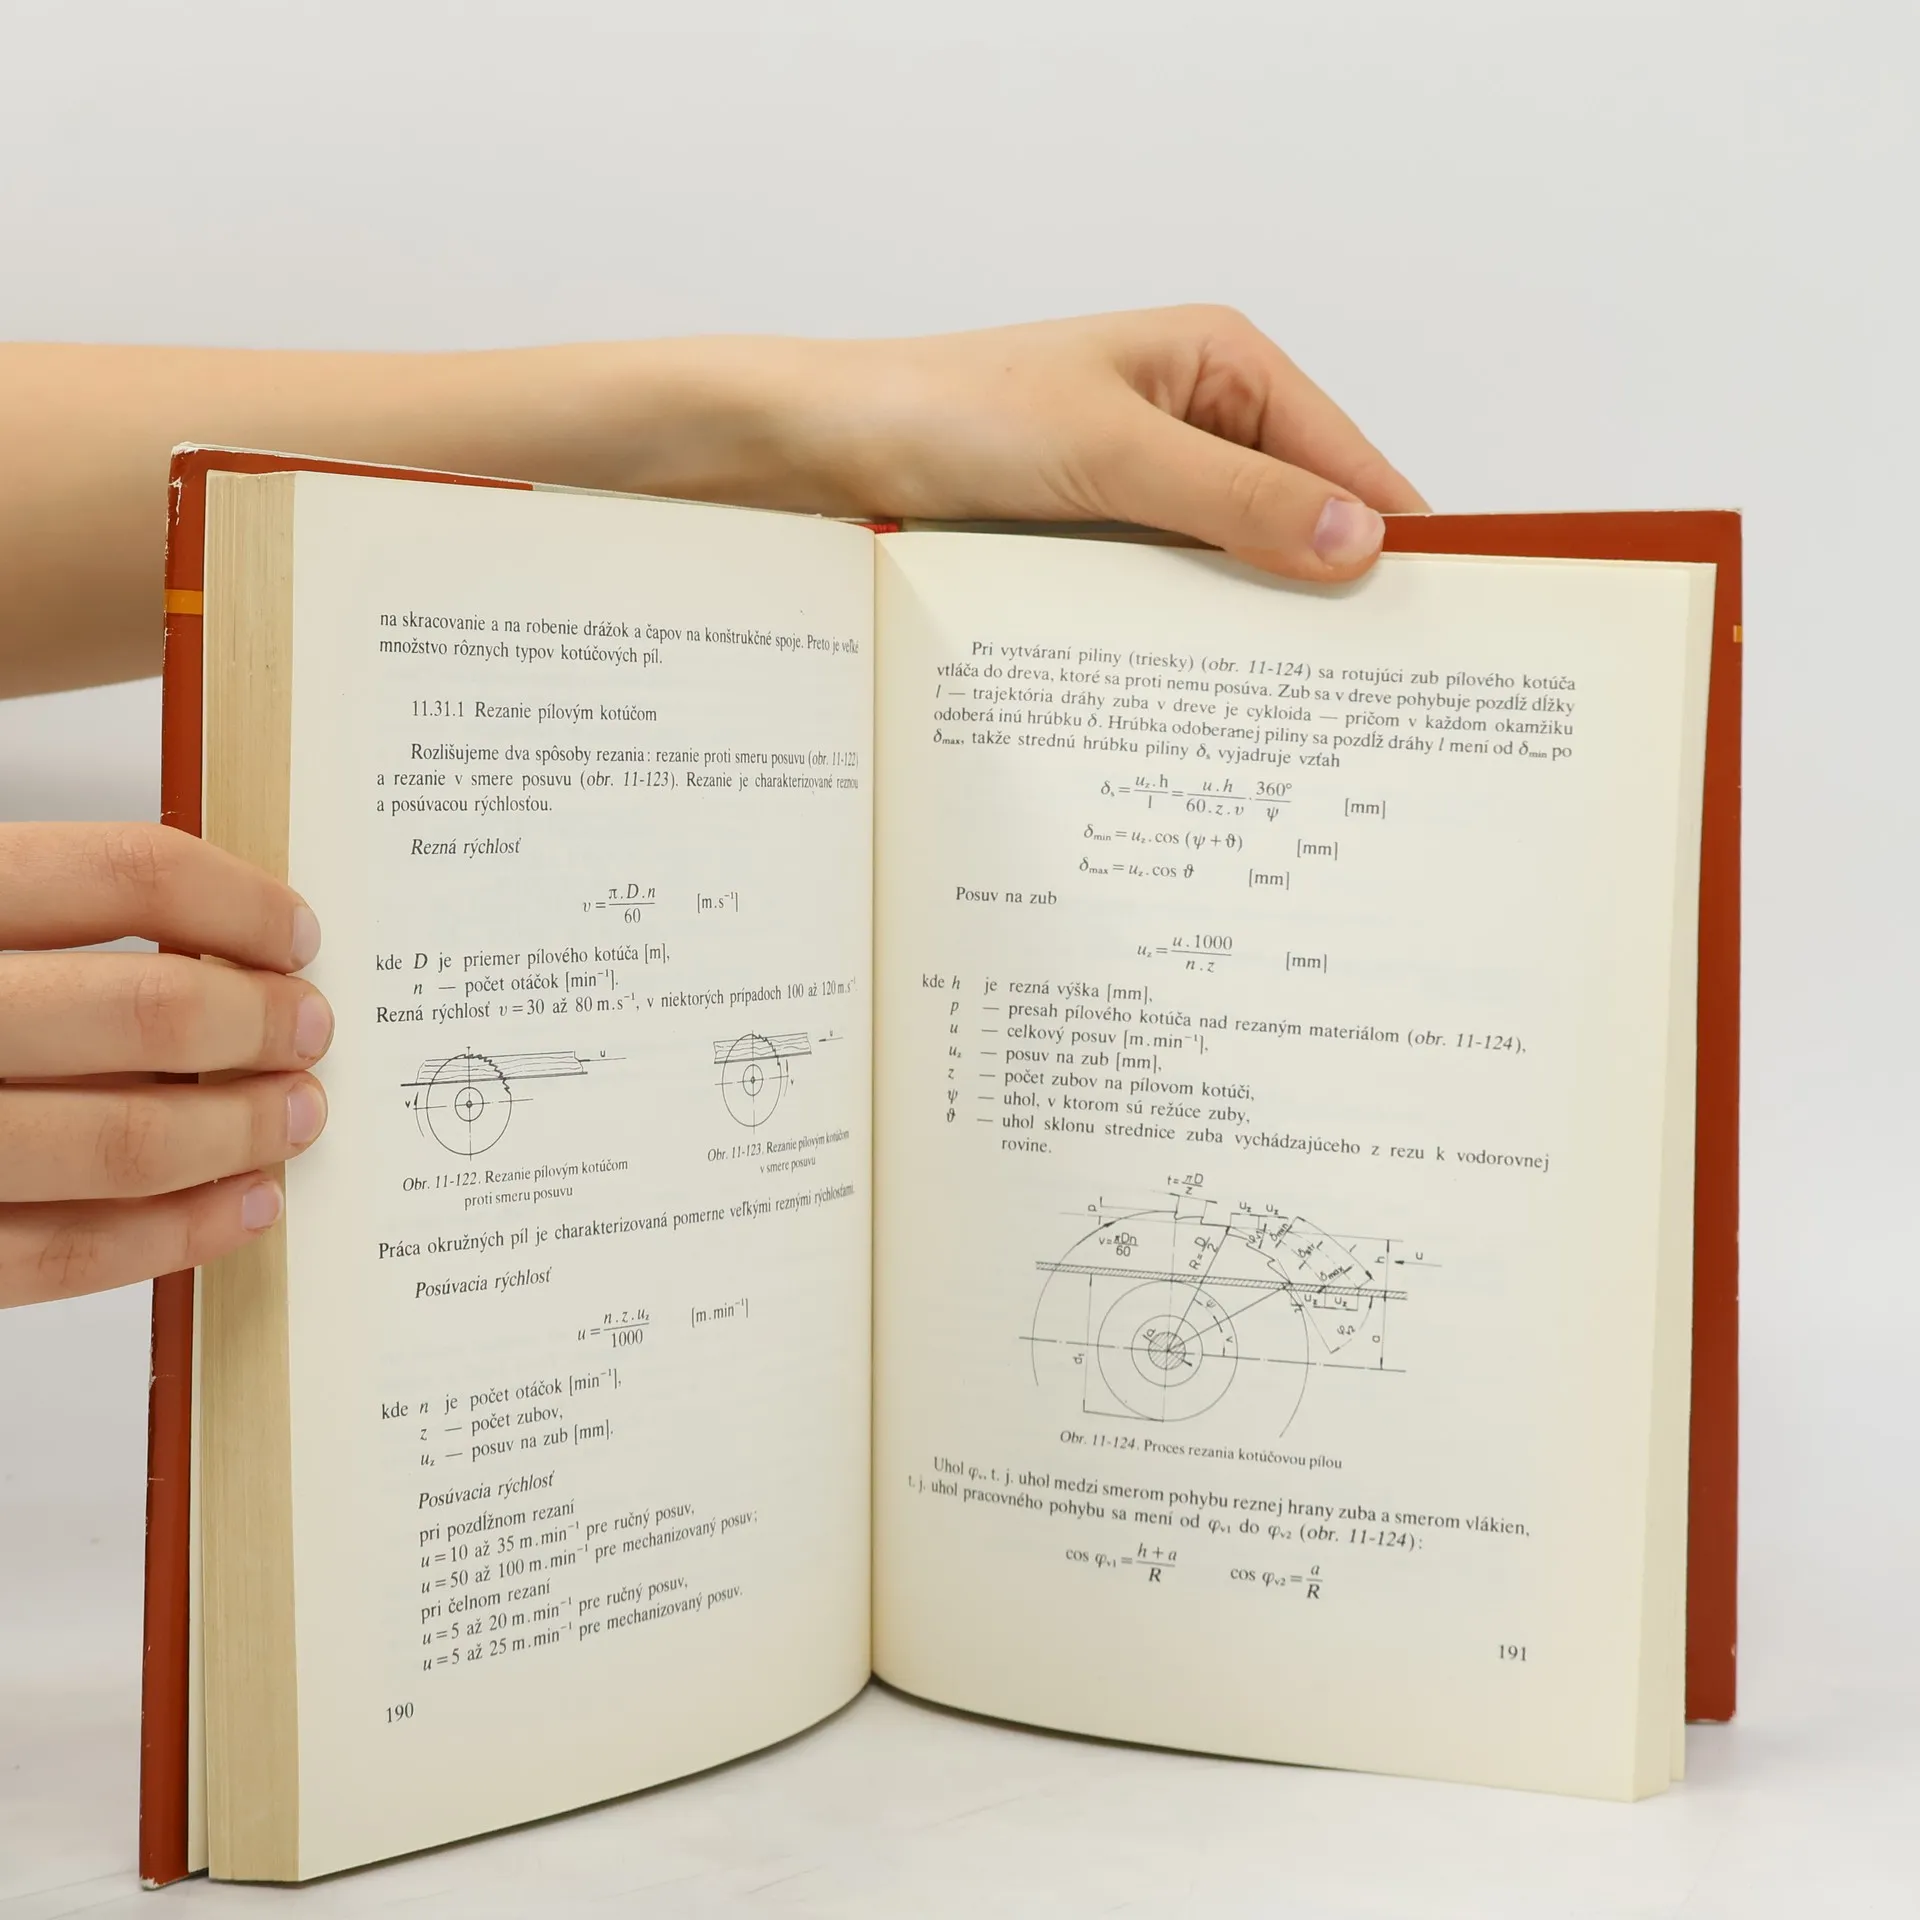 na skracovanie a na robenie drážok a čapov na konštrukčné spoje. Preto je veľké
množstvo rôznych typov kotúčových píl.
11.31.1 Rezanie pílovým kotúčom
Rozlišujeme dva spôsoby rezania: rezanie proti smeru posuvu (obr. 11-122)
a rezanie v smere posuvu (obr. 11-123). Rezanie je charakterizované reznou
a posúvacou rýchlosťou.
Rezná rýchlosť
v = π.D.n / 60 [m.s⁻¹]
kde D je priemer pílového kotúča [m],
n — počet otáčok [min⁻¹].
Rezná rýchlosť v = 30 až 80 m.s⁻¹, v niektorých prípadoch 100 až 120 m.s⁻¹.
u
v
u
v
Obr. 11-122. Rezanie pílovým kotúčom
proti smeru posuvu
Obr. 11-123. Rezanie pílovým kotúčom
v smere posuvu
Práca okružných píl je charakterizovaná pomerne veľkými reznými rýchlosťami.
Posúvacia rýchlosť
u = n.z.u_z / 1000 [m.min⁻¹]
kde n je počet otáčok [min⁻¹],
z — počet zubov,
u_z — posuv na zub [mm].
Posúvacia rýchlosť
pri pozdĺžnom rezaní
u = 10 až 35 m.min⁻¹ pre ručný posuv,
u = 50 až 100 m.min⁻¹ pre mechanizovaný posuv;
pri čelnom rezaní
u = 5 až 20 m.min⁻¹ pre ručný posuv,
u = 5 až 25 m.min⁻¹ pre mechanizovaný posuv.
190
Pri vytváraní piliny (triesky) (obr. 11-124) sa rotujúci zub pílového kotúča
vtláča do dreva, ktoré sa proti nemu posúva. Zub sa v dreve pohybuje pozdĺž dĺžky
l — trajektória dráhy zuba v dreve je cykloida — pričom v každom okamžiku
odoberá inú hrúbku δ. Hrúbka odoberanej piliny sa pozdĺž dráhy l mení od δ_min po
δ_max, takže strednú hrúbku piliny δ_s vyjadruje vzťah
δ_s = u_z.h / l = u.h / 60.z.v . 360° / ψ [mm]
δ_min = u_z.cos (ψ + ϑ) [mm]
δ_max = u_z.cos ϑ [mm]
Posuv na zub
u_z = u.1000 / n.z [mm]
kde h je rezná výška [mm],
p — presah pílového kotúča nad rezaným materiálom (obr. 11-124),
u — celkový posuv [m.min⁻¹],
u_z — posuv na zub [mm],
z — počet zubov na pílovom kotúči,
ψ — uhol, v ktorom sú režúce zuby,
ϑ — uhol sklonu strednice zuba vychádzajúceho z rezu k vodorovnej
rovine.
t = πD / z
u_z u_z
v = πDn / 60
R = D/2
δ_min
δ_max
l
h
u
u_z u_z
ψ
a
Obr. 11-124. Proces rezania kotúčovou pílou
Uhol φ_v, t. j. uhol medzi smerom pohybu reznej hrany zuba a smerom vlákien,
t. j. uhol pracovného pohybu sa mení od φ_v1 do φ_v2 (obr. 11-124):
cos φ_v1 = h + a / R cos φ_v2 = a / R
191